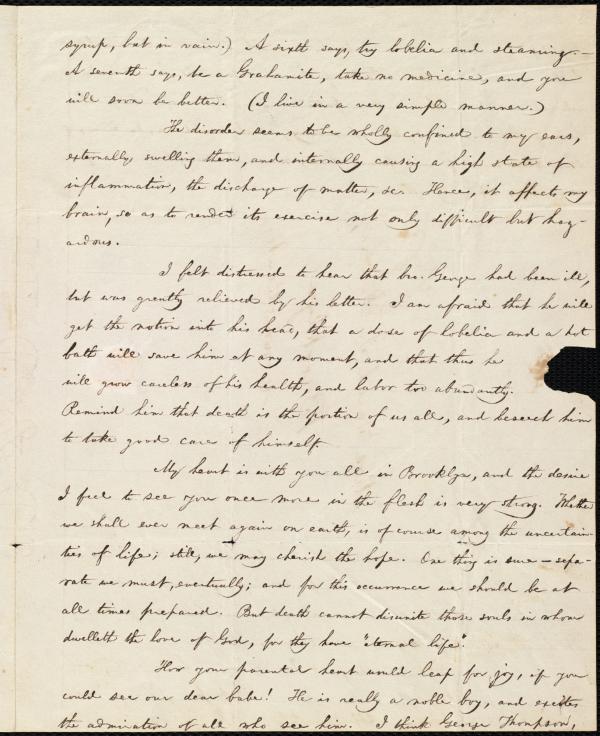 syrup, but in vain.) A sixth says, try lobelia and steaming.—
A seventh says, be a Grahamite, take no medicine, and you
will soon be better. (I live in a very simple manner.)
The disorder seems to be wholly confined to my ears,
externally swelling them, and internally causing a high state of
inflammation, the discharge of matter, &c. Hence, it affects my
brain, so as to render its exercise not only difficult but haz-
ardous.
I felt distressed to hear that bro. George had been ill,
but was greatly relieved by his letter. I am afraid that he will
get the notion into his head, that a dose of lobelia and a hot
bath will save him at any moment, and that thus he
will grow careless of his health, and labor too abundantly.
Remind him that death is the portion of us all, and beseech him
to take good care of himself.
My heart is with you all in Brooklyn, and the desire
I feel to see you once more in the flesh is very strong. Whether
we shall ever meet again on earth, is of course among the uncertain-
ties of life; still, we may cherish the hope. One thing is sure — sepa-
rate we must, eventually; and for this occurrence we should be at
all times prepared. But death cannot disunite those souls in whom
dwelleth the love of God, for they have "eternal life".
How your parental heart would leap for joy, if you
could see our dear babe! He is really a noble boy, and excites
the admiration of all who see him. I think George Thompson,